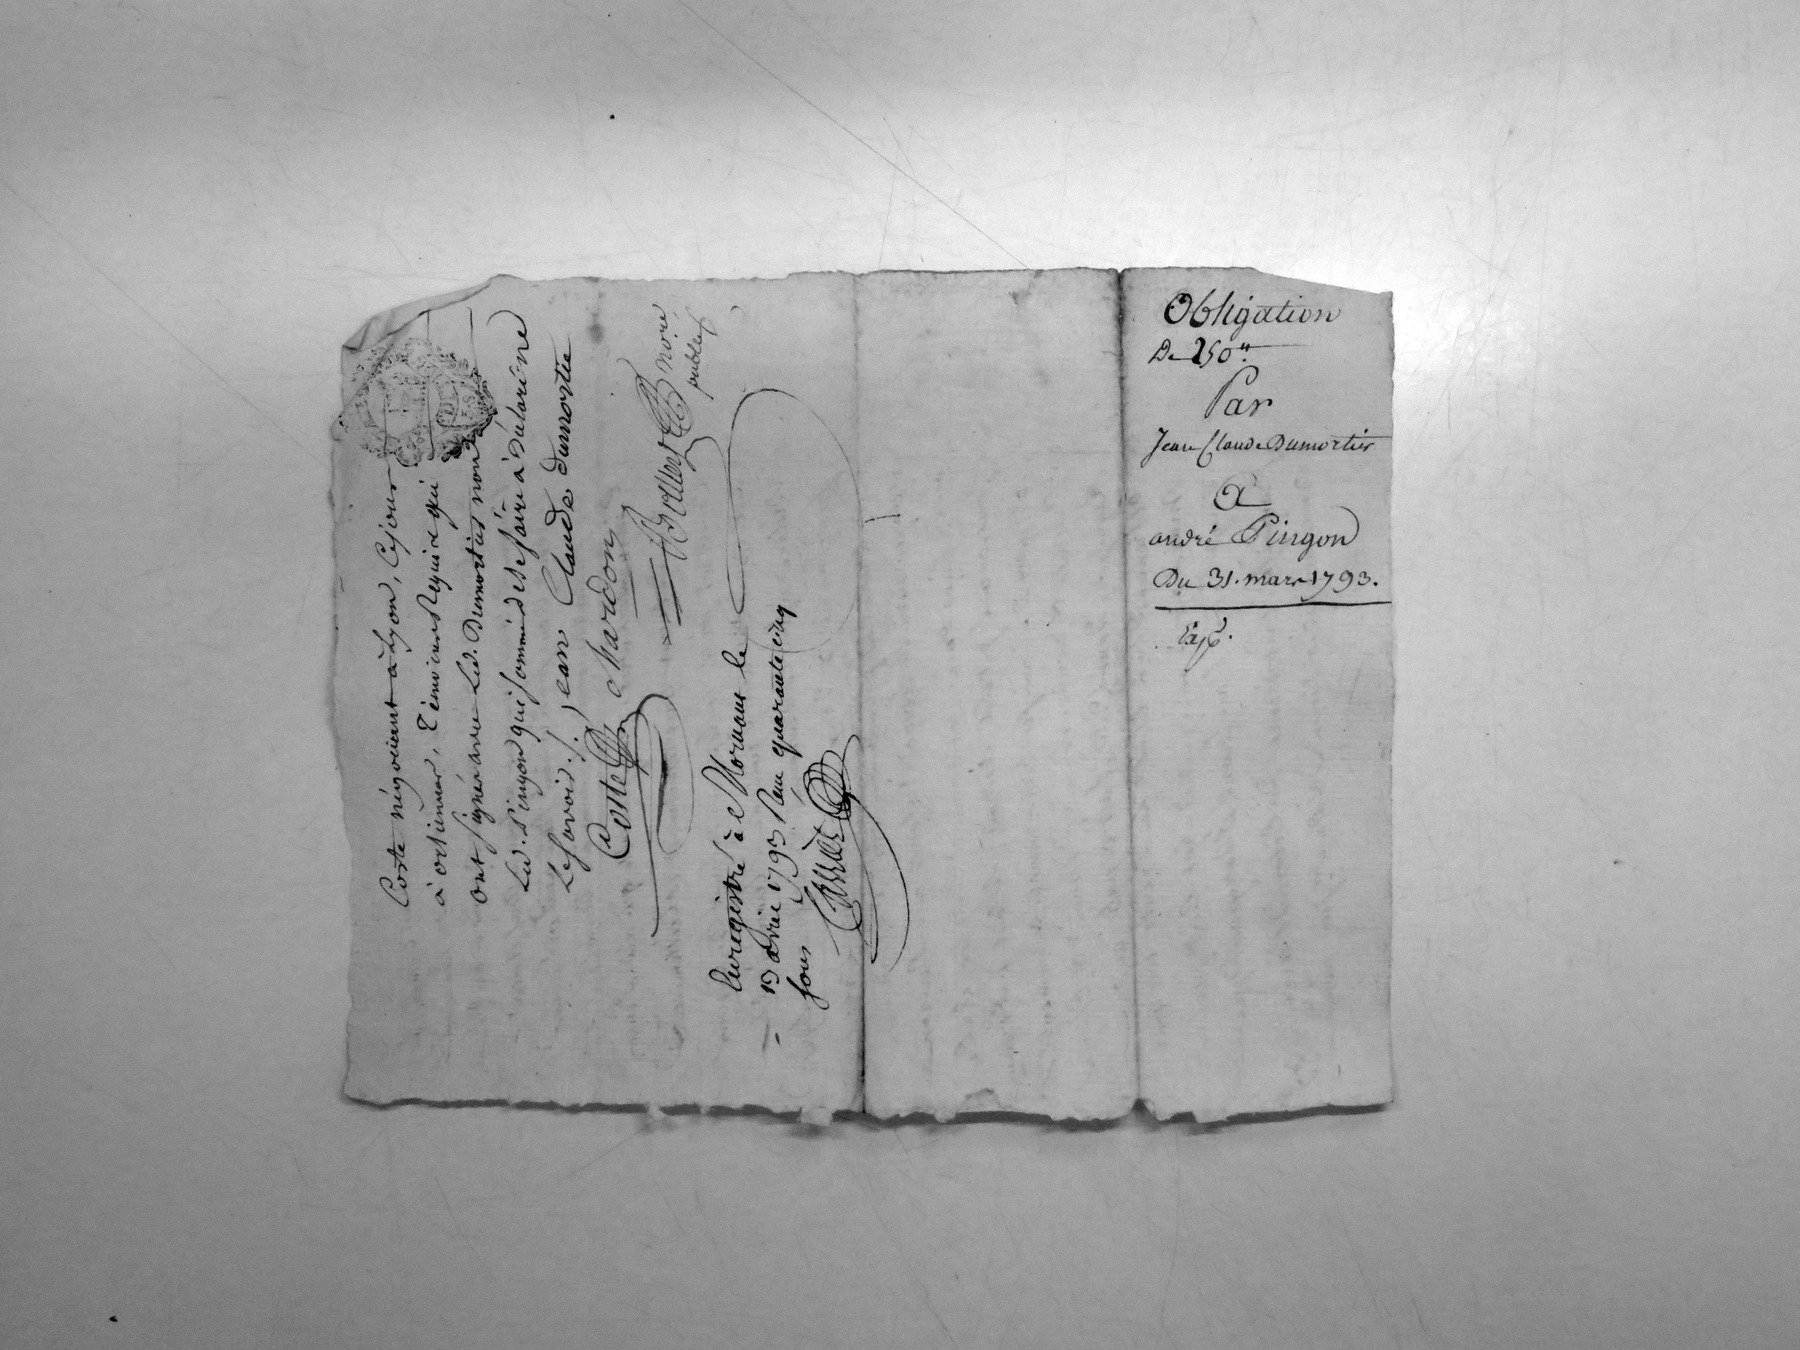 Coste négociant à Lyon, Cejour
à cet Témoins Requis qui
ont signé avec Led. Dumortier non
Led. Pingon qui sommé de se faire a Déclaré ne
Le savoir./. Jean Claude dumortie
Coste Chardon
no.re
public
Enregistré à Mornant le
13 avril 1793 Reçu quarante cinq
sous
Obligation
De 250"
Par
Jean Claude Dumortier
A
andré Pingon
Du 31. mars 1793.